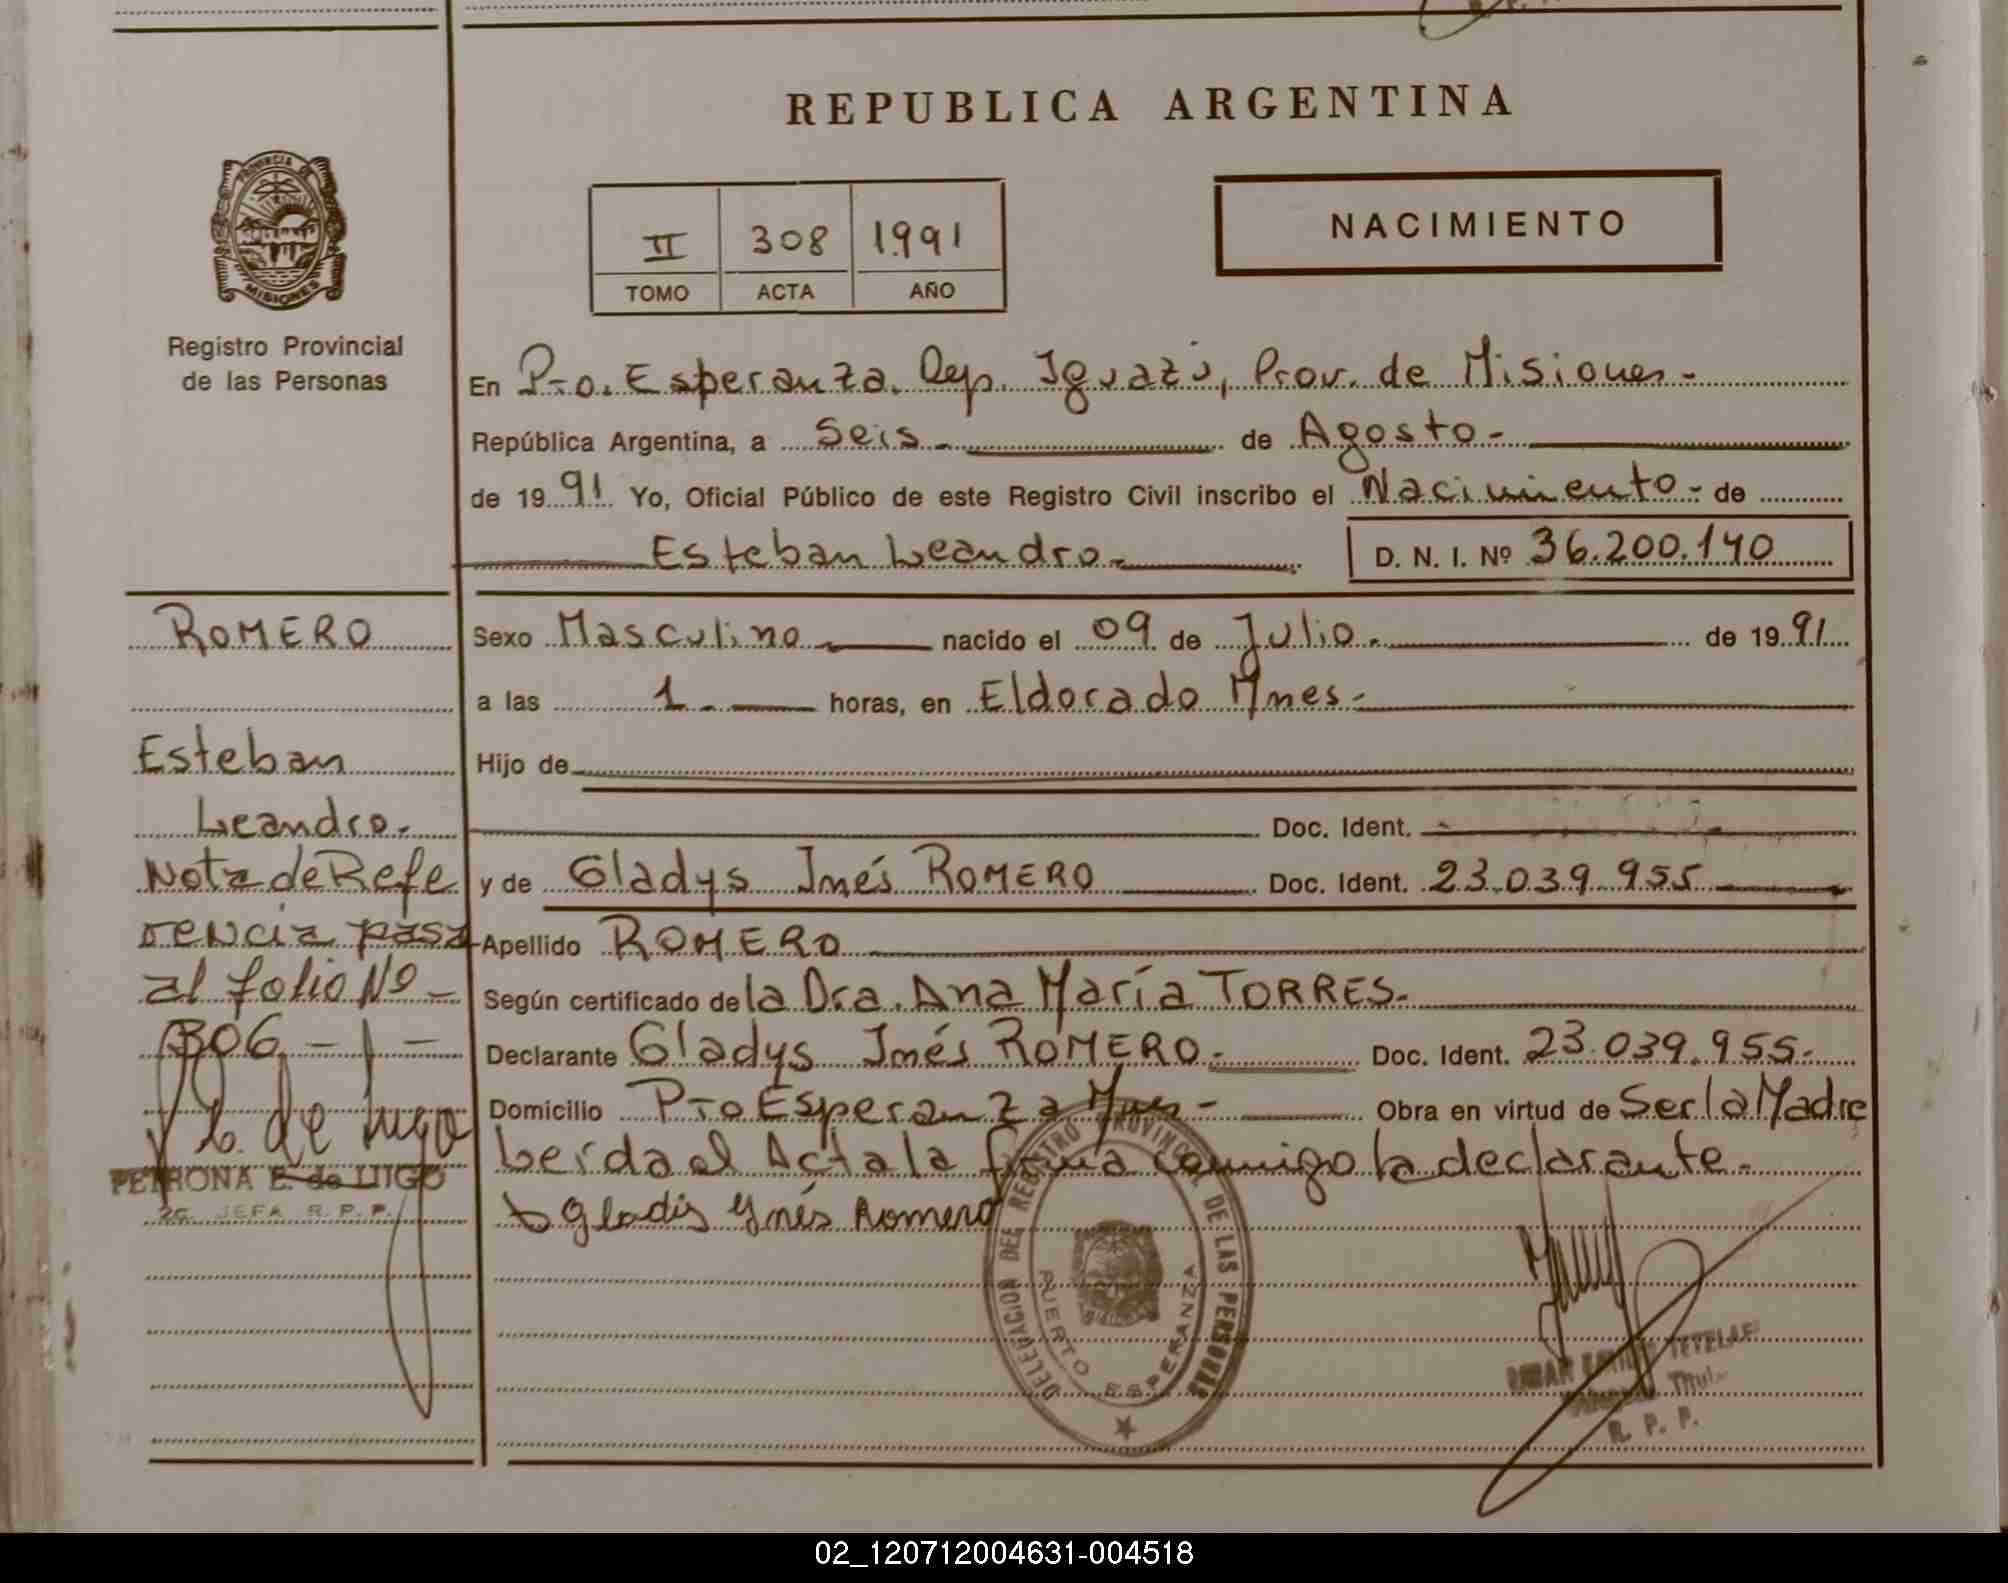 REPUBLICA ARGENTINA
PROVINCIA DE
MISIONES
Registro Provincial
de las Personas
II 308 1991
TOMO ACTA AÑO
NACIMIENTO
En Pto. Esperanza. Dep. Iguazú, Prov. de Misiones-
República Argentina, a Seis- de Agosto-
de 1991 Yo, Oficial Público de este Registro Civil inscribo el Nacimiento- de
Esteban Leandro- D. N. I. Nº 36.200.140
ROMERO
Esteban
Leandro-
Nota de Refe
rencia pasa
al folio Nº-
306
PETRONA E. de LUGO
JEFA R. P. P.
Sexo Masculino nacido el 09 de Julio. de 1991
a las 1. horas, en Eldorado Mnes-
Hijo de
Doc. Ident.
y de Gladys Inés ROMERO Doc. Ident. 23.039.955
Apellido ROMERO
Según certificado de la Dra. Ana María TORRES-
Declarante Gladys Inés ROMERO- Doc. Ident. 23.039.955-
Domicilio Pto Esperanza Mnes- Obra en virtud de Ser la Madre
Leida el Acta la firma conmigo la declarante-
Gladis Ynés Romero
DELEGACION DEL REGISTRO PROVINCIAL DE LAS PERSONAS
PUERTO ESPERANZA
R. P. P.
02_120712004631-004518